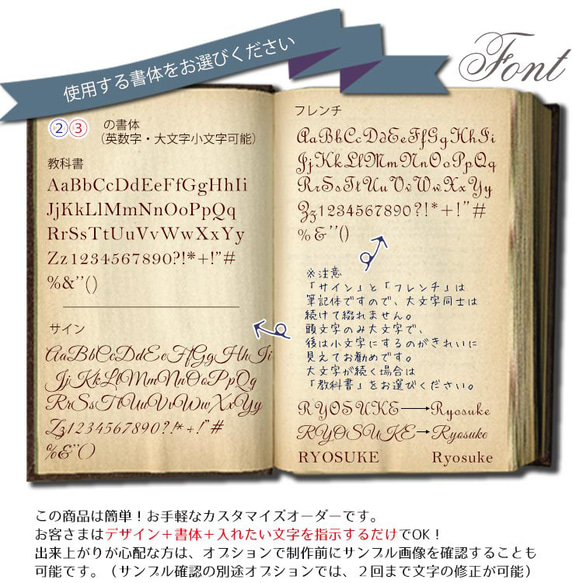 使用する書体をお選びください
Font
②③ の書体
(英数字・大文字小文字可能)
教科書
AaBbCcDdEeFfGgHhIi
JjKkLlMmNnOoPpQq
RrSsTtUuVvWwXxYy
Zz1234567890?!*+!"#
%&''()
サイン
AaBbCcDdEeFfGgHhIi
JjKkLlMmNnOoPpQq
RrSsTtUuVvWwXxYy
Zz1234567890?!*+!"#
%&''()
フレンチ
AaBbCcDdEeFfGgHhIi
JjKkLlMmNnOoPpQq
RrSsTtUuVvWwXxYy
Zz1234567890?!*+!"#
%&''()
※注意
「サイン」と「フレンチ」は
筆記体ですので、大文字同士は
続けて綴れません。
頭文字のみ大文字で、
後は小文字にするのがきれいに
見えてお勧めです。
大文字が続く場合は
「教科書」をお選びください。
RYOSUKE→Ryosuke
RYOSUKE→Ryosuke
RYOSUKE Ryosuke
この商品は簡単!お手軽なカスタマイズオーダーです。
お客さまはデザイン+書体+入れたい文字を指示するだけでOK!
出来上がりが心配な方は、オプションで制作前にサンプル画像を確認することも
可能です。(サンプル確認の別途オプションでは、2回まで文字の修正が可能)